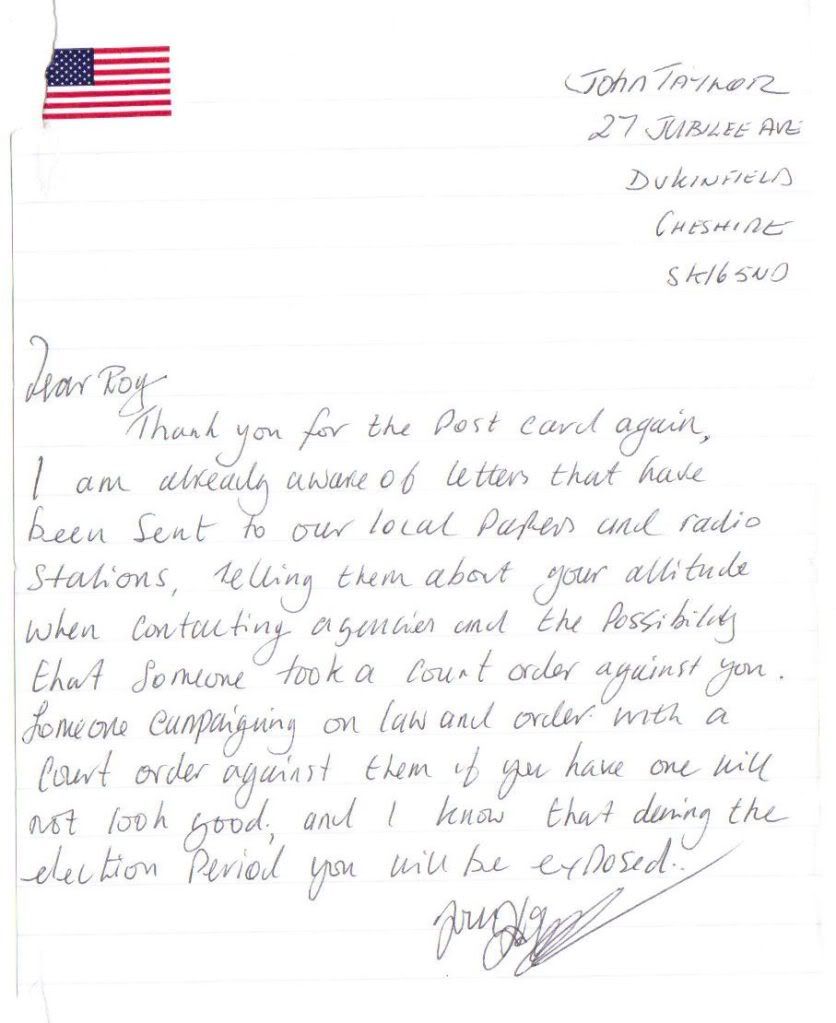 John Taylor
27 JUBILEE AVE
DUKINFIELD
CHESHIRE
SK16 5ND
Dear Roy
Thank you for the Post card again,
I am already aware of letters that have
been sent to our local Papers and radio
Stations, telling them about your attitude
when contacting agencies and the Possibility
that someone took a court order against you.
Someone campaigning on law and order with a
Court order against them if you have one will
not look good, and I know that during the
election Period you will be exposed.